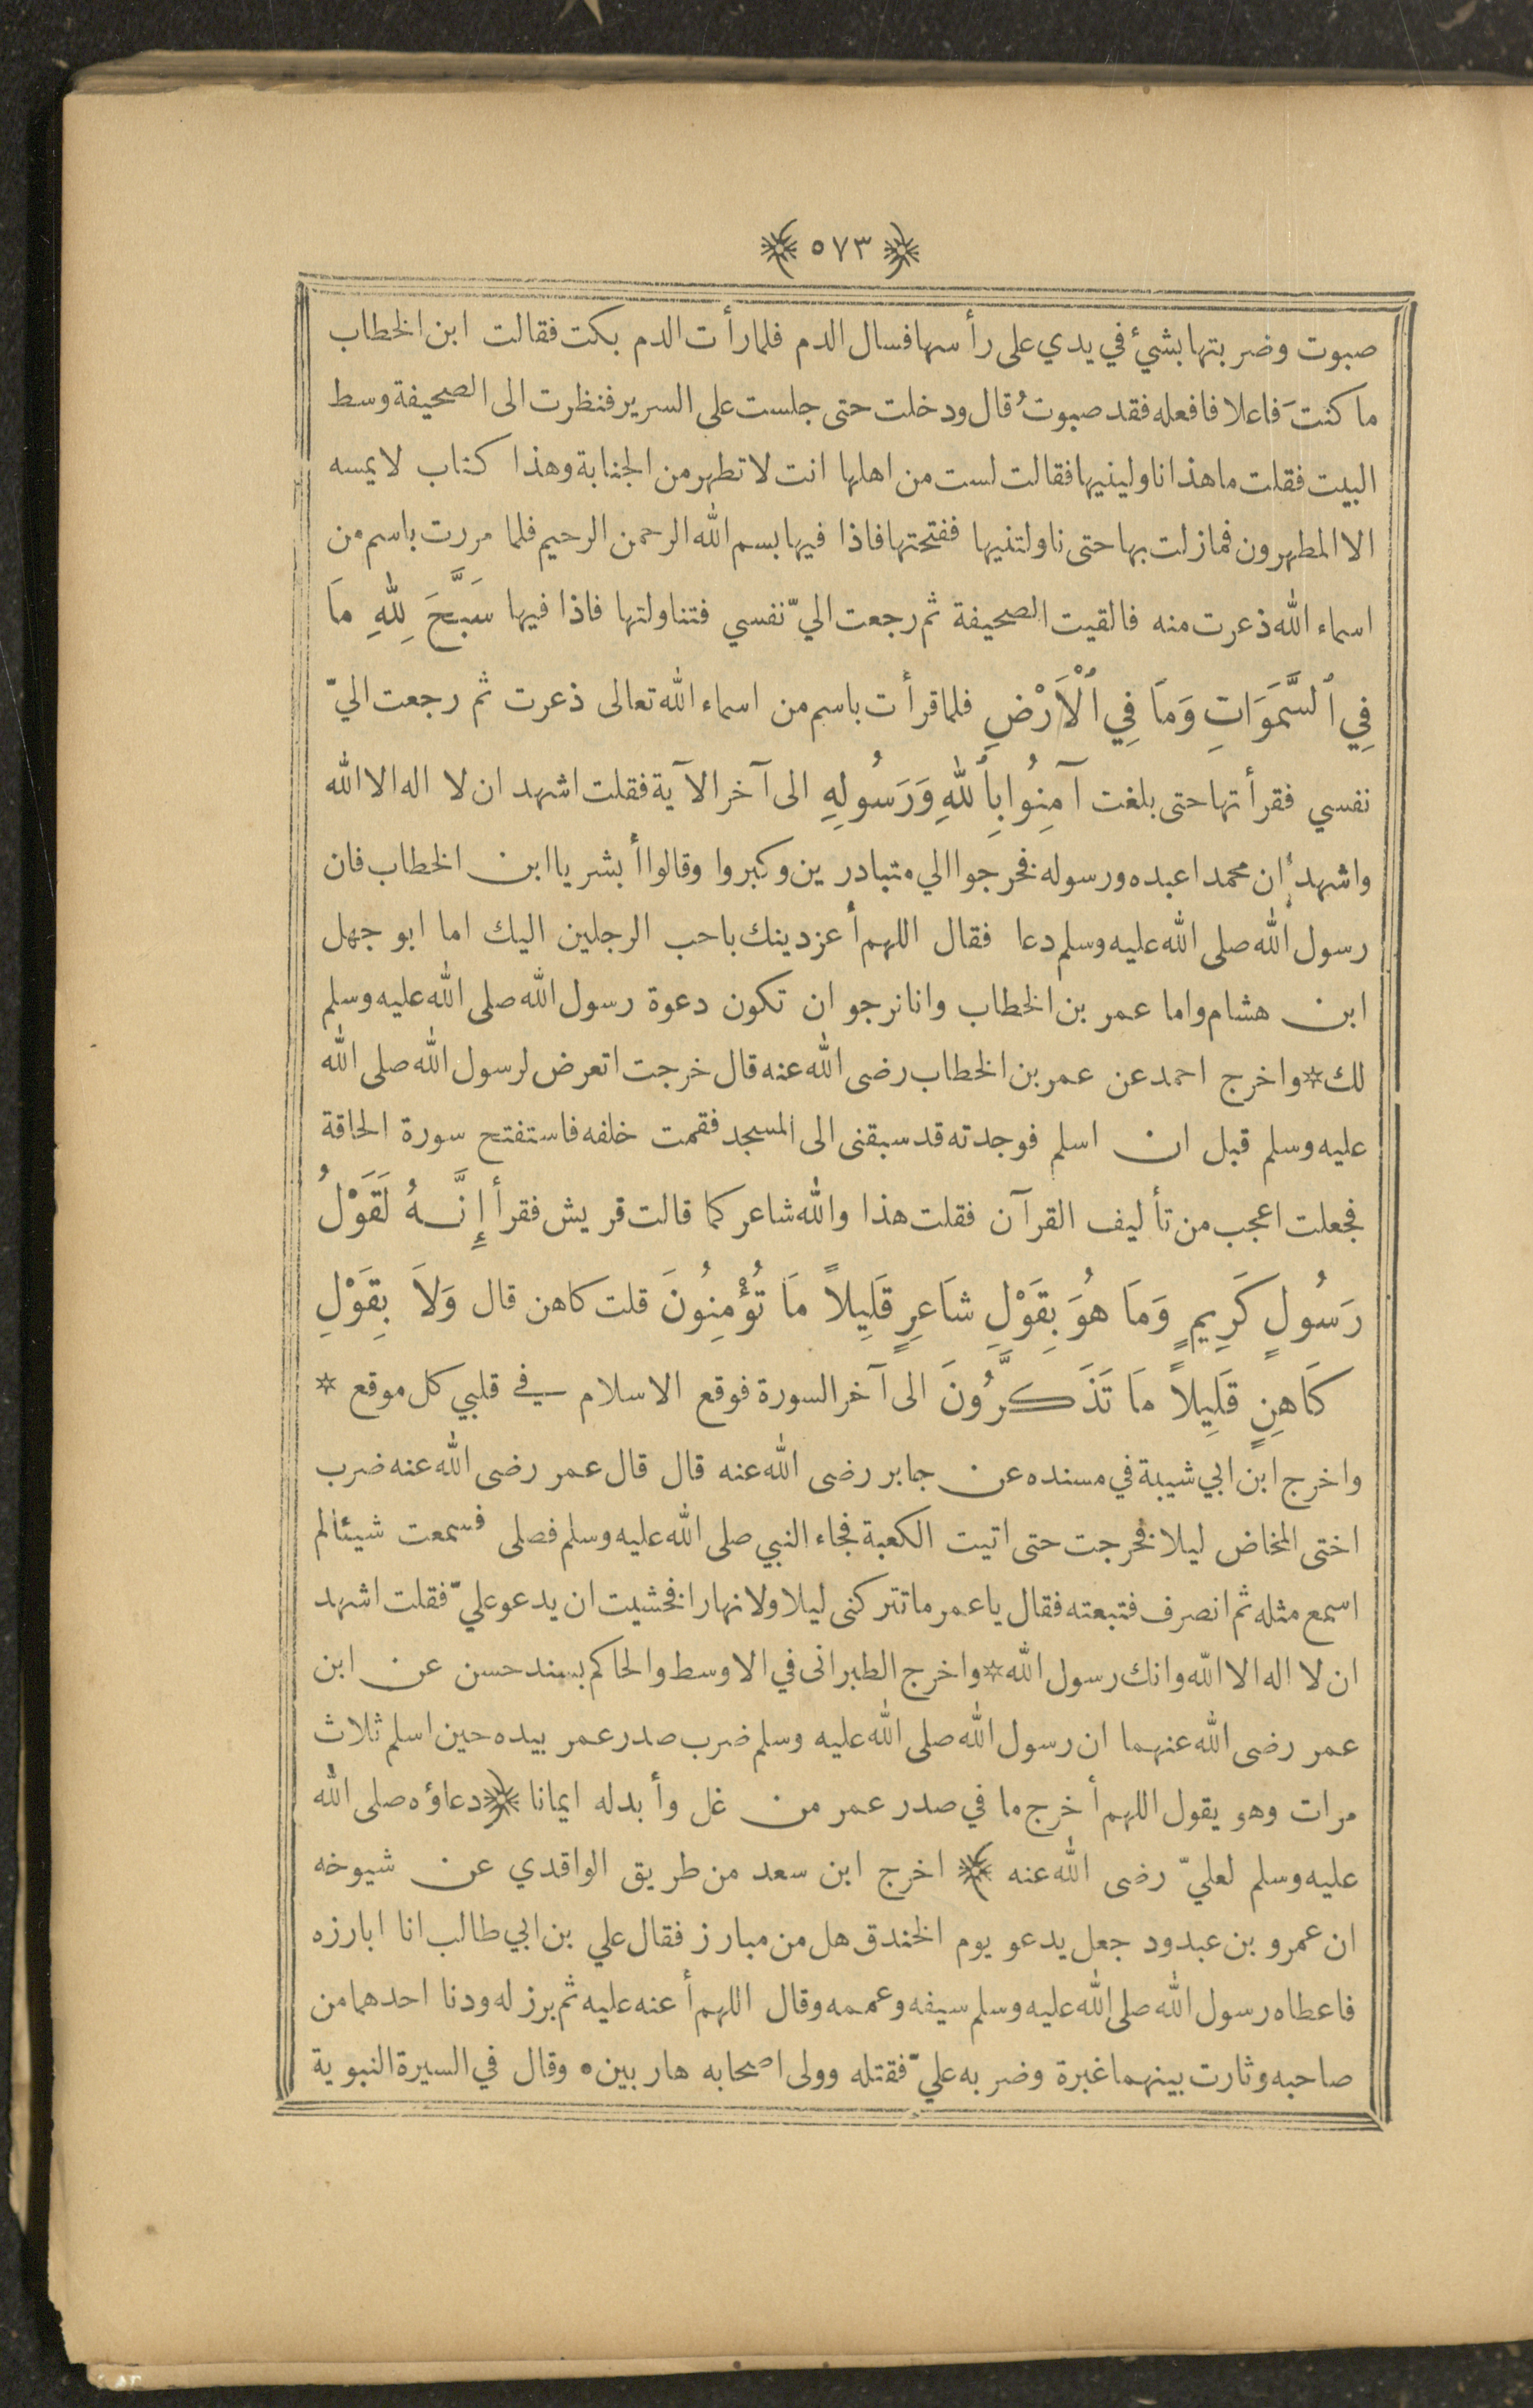 ﴿ ٥٧٣ ﴾
صبوت وضربتها بشئ في يدي على رأسها فسال الدم فلما رأت الدم بكت فقالت ابن الخطاب
ما كنتَ فاعلا فافعله فقد صبوتُ قال ودخلت حتى جلست على السرير فنظرت الى الصحيفة وسط
البيت فقلت ما هذا ناولينيها فقالت لست من اهلها انت لا تطهر من الجنابة وهذا كتاب لا يمسه
الا المطهرون فما زلت بها حتى ناولتنيها ففتحتها فاذا فيها بسم الله الرحمن الرحيم فلما مررت باسم من
اسماء الله ذعرت منه فالقيت الصحيفة ثم رجعت اليّ نفسي فتناولتها فاذا فيها سَبَّحَ لِلّٰهِ مَا
فِي ٱلسَّمَوَاتِ وَمَا فِي ٱلْأَرْضِ فلما قرأت باسم من اسماء الله تعالى ذعرت ثم رجعت اليّ
نفسي فقرأتها حتى بلغت آمِنُوا بِٱللّٰهِ وَرَسُولِهِ الى آخر الآية فقلت اشهد ان لا اله الا الله
واشهد أن محمدا عبده ورسوله فخرجوا الي متبادرين وكبروا وقالوا أبشر يا ابن الخطاب فان
رسول الله صلى الله عليه وسلم دعا فقال اللهم أعز دينك باحب الرجلين اليك اما ابو جهل
ابن هشام واما عمر بن الخطاب وانا نرجو ان تكون دعوة رسول الله صلى الله عليه وسلم
لك * واخرج احمد عن عمر بن الخطاب رضى الله عنه قال خرجت اتعرض لرسول الله صلى الله
عليه وسلم قبل ان اسلم فوجدته قد سبقنى الى المسجد فقمت خلفه فاستفتح سورة الحاقة
فجعلت اعجب من تأليف القرآن فقلت هذا والله شاعر كما قالت قريش فقرأ إِنَّهُ لَقَوْلُ
رَسُولٍ كَرِيمٍ وَمَا هُوَ بِقَوْلِ شَاعِرٍ قَلِيلاً مَا تُؤْمِنُونَ قلت كاهن قال وَلاَ بِقَوْلِ
كَاهِنٍ قَلِيلاً مَا تَذَكَّرُونَ الى آخر السورة فوقع الاسلام في قلبي كل موقع *
واخرج ابن ابي شيبة في مسنده عن جابر رضى الله عنه قال قال عمر رضى الله عنه ضرب
اختى المخاض ليلا فخرجت حتى اتيت الكعبة فجاء النبي صلى الله عليه وسلم فصلى فسمعت شيئا لم
اسمع مثله ثم انصرف فتبعته فقال يا عمر ما تتركنى ليلا ولا نهارا فخشيت ان يدعو عليّ فقلت اشهد
ان لا اله الا الله وانك رسول الله * واخرج الطبرانى في الاوسط والحاكم بسند حسن عن ابن
عمر رضى الله عنهما ان رسول الله صلى الله عليه وسلم ضرب صدر عمر بيده حين اسلم ثلاث
مرات وهو يقول اللهم أخرج ما في صدر عمر من غل وأبدله ايمانا ﴿ دعاؤه صلى الله
عليه وسلم لعليّ رضى الله عنه ﴾ اخرج ابن سعد من طريق الواقدي عن شيوخه
ان عمرو بن عبدود جعل يدعو يوم الخندق هل من مبارز فقال علي بن ابي طالب انا ابارزه
فاعطاه رسول الله صلى الله عليه وسلم سيفه وعممه وقال اللهم أعنه عليه ثم برز له ودنا احدهما من
صاحبه وثارت بينهما غبرة وضربه عليّ فقتله وولى اصحابه هاربين • وقال في السيرة النبوية